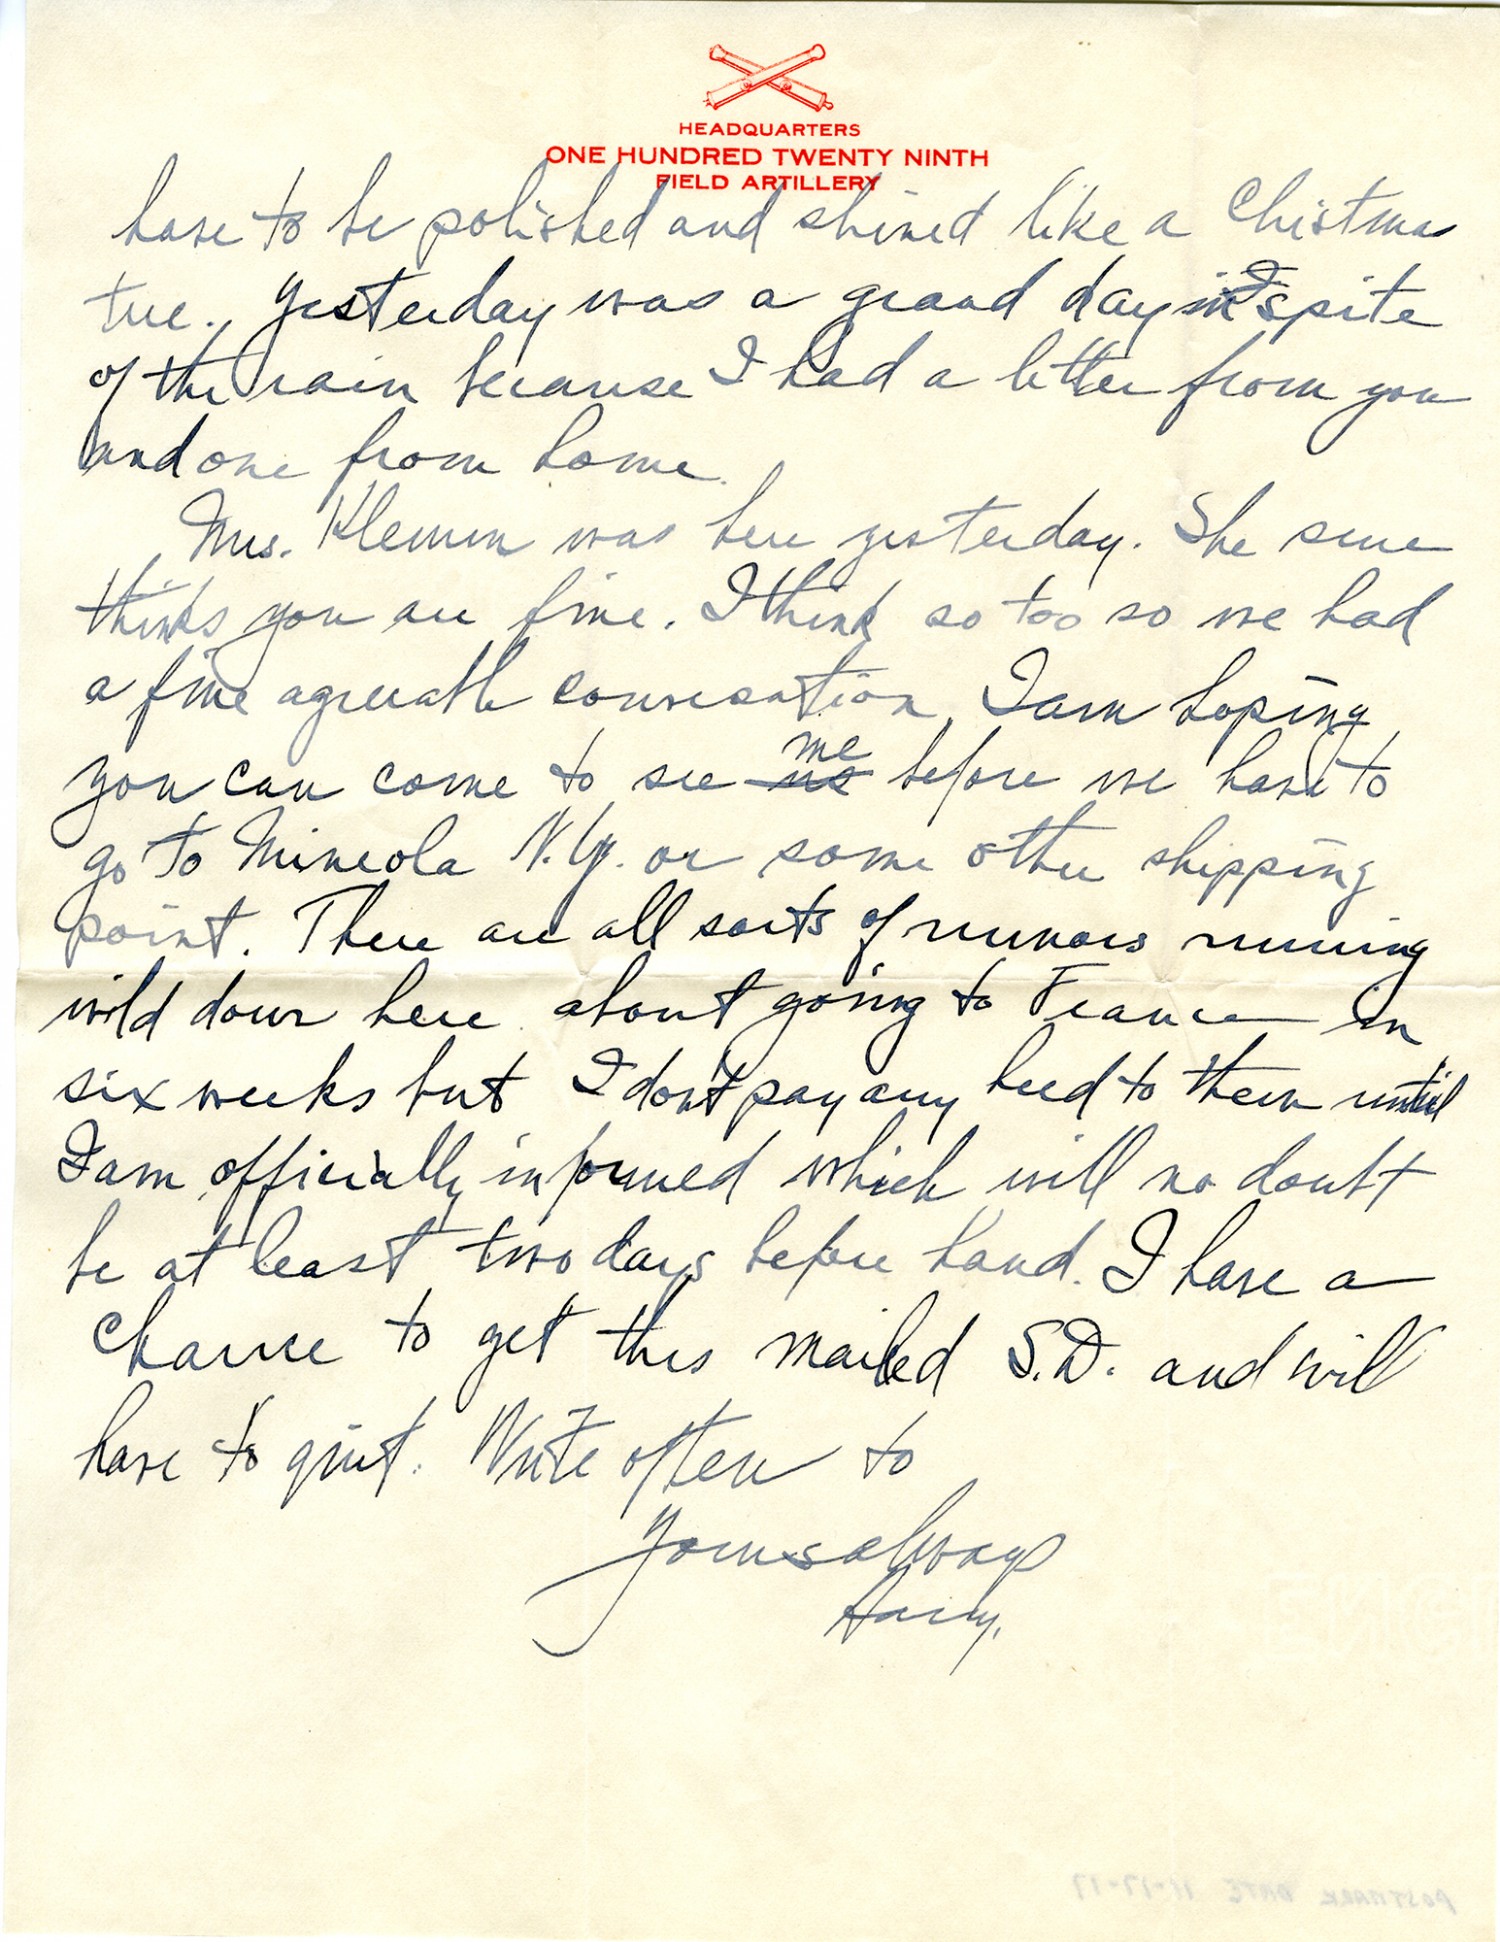 HEADQUARTERS
ONE HUNDRED TWENTY NINTH
FIELD ARTILLERY
have to be polished and shined like a Chistmas
tree. Yesterday was a grand day in spite
of the rain because I had a letter from you
and one from home.
Mrs. Klemm was here yesterday. She sure
thinks you are fine. I think so too so we had
a fine agreeable conversation. I am hoping
me
you can come to see us before we have to
go to Mineola N.Y. or some other shipping
point. There are all sorts of rumors running
wild down here about going to France in
six weeks but I don't pay any heed to them until
I am officially informed which will no doubt
be at least two days before hand. I have a
chance to get this mailed S.D. and will
have to quit. Write often to
Yours always
Harry.
POSTMARK DATE 11-17-17